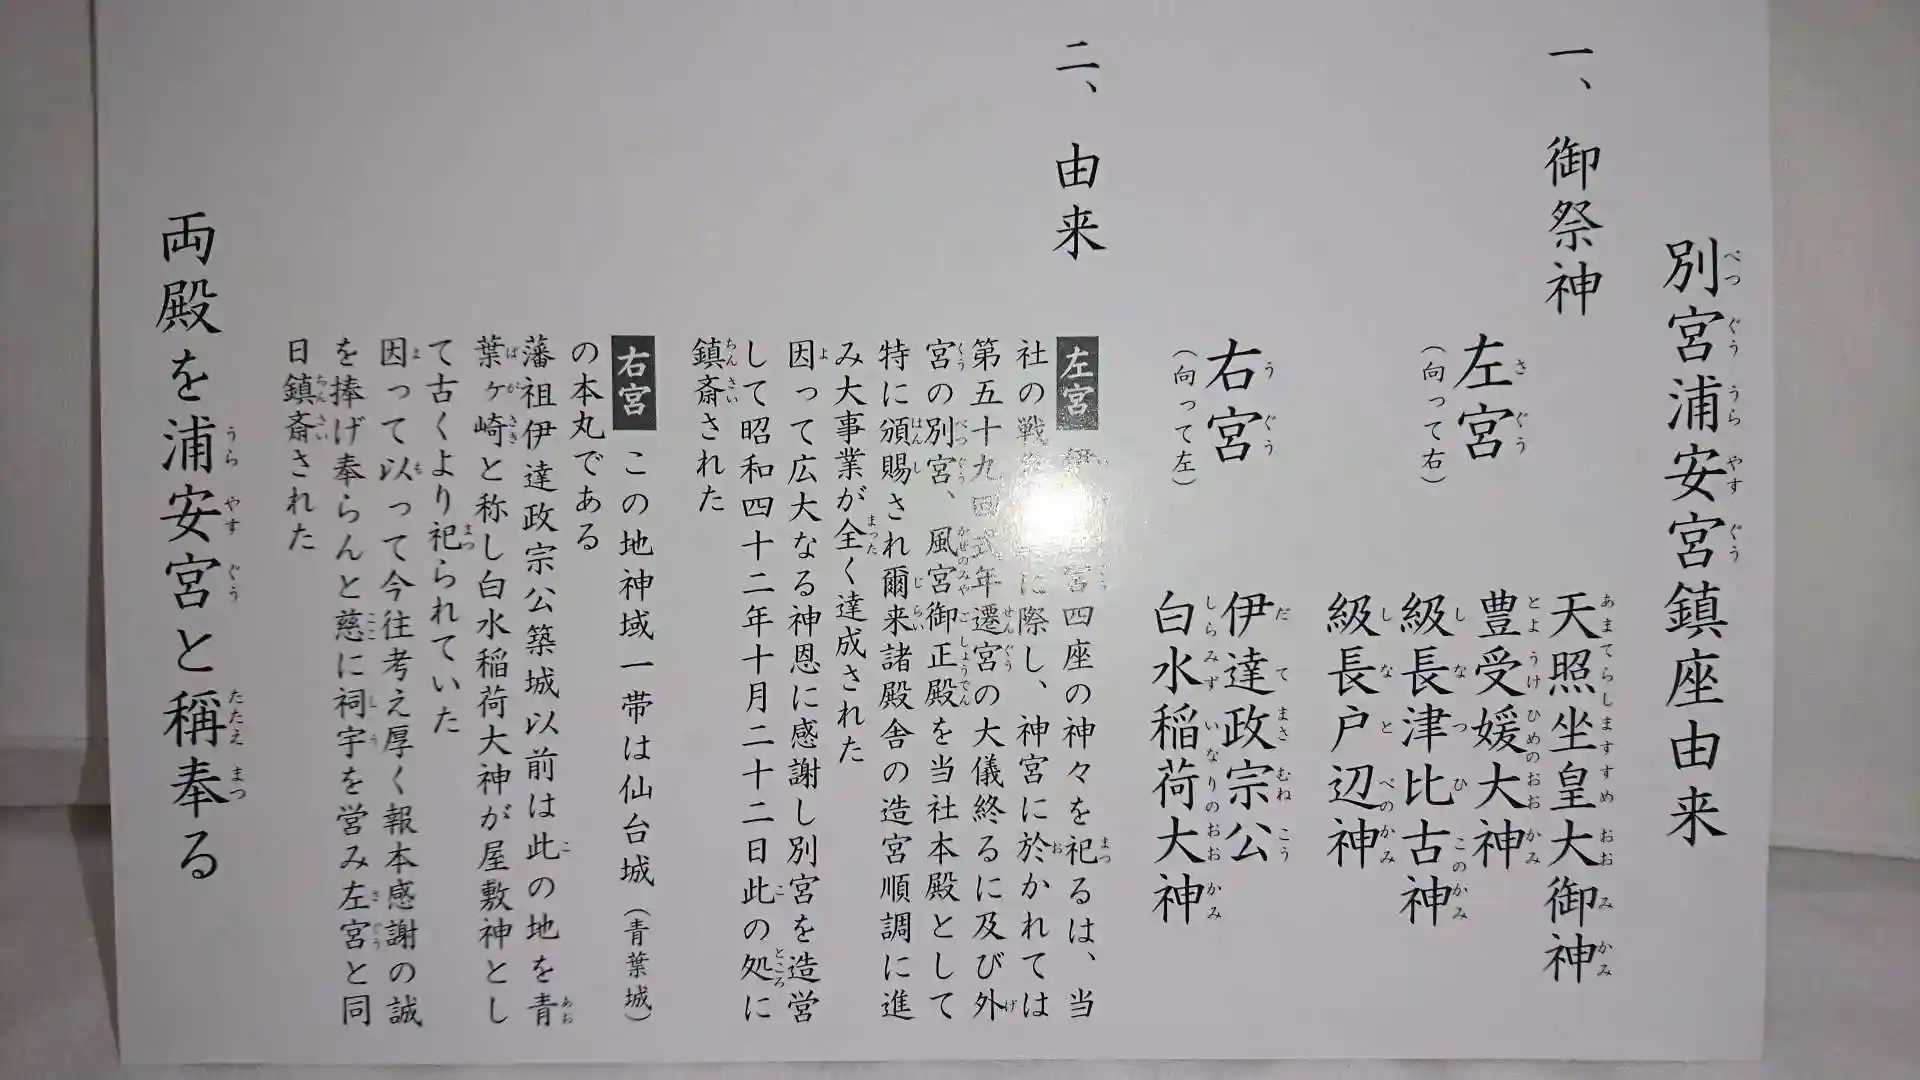 別宮浦安宮鎮座由来
一、御祭神
左宮
（向って右）
天照坐皇大御神
豊受媛大神
級長津比古神
級長戸辺神
右宮
（向って左）
伊達政宗公
白水稲荷大神
二、由来
左宮 宮四座の神々を祀るは、当
社の戦に際し、神宮に於かれては
第五十九回式年遷宮の大儀終るに及び外
宮の別宮、風宮御正殿を当社本殿として
特に頒賜され爾来諸殿舎の造宮順調に進
み大事業が全く達成された
因って広大なる神恩に感謝し別宮を造営
して昭和四十二年十月二十二日此の処に
鎮斎された
右宮 この地神域一帯は仙台城（青葉城）
の本丸である
藩祖伊達政宗公築城以前は此の地を青
葉ヶ崎と称し白水稲荷大神が屋敷神とし
て古くより祀られていた
因って以って今往考え厚く報本感謝の誠
を捧げ奉らんと慈に祠宇を営み左宮と同
日鎮斎された
両殿を浦安宮と稱奉る